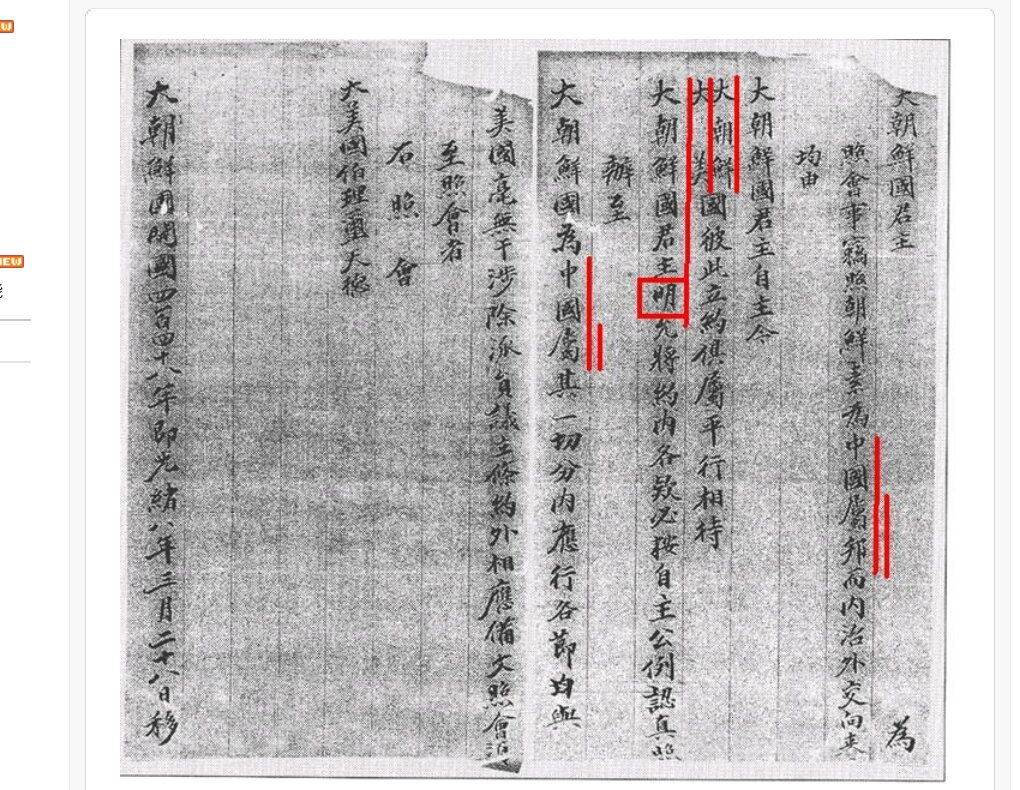 大朝鮮國君主 為
照會事竊照朝鮮素為中國屬邦而內治外交向來
均由
大朝鮮國君主自主今
大朝鮮
大美國彼此立約俱屬平行相待
大朝鮮國君主明允將約內各欵必按自主公例認真照
辦至
大朝鮮國為中國屬其一切分內應行各節均與
美國毫無干涉除派員議立條約外相應備文照會
至照會者
右照會
大美國伯理璽天德
大朝鮮國開國四百四十八年即光緒八年三月二十八日移
NEW